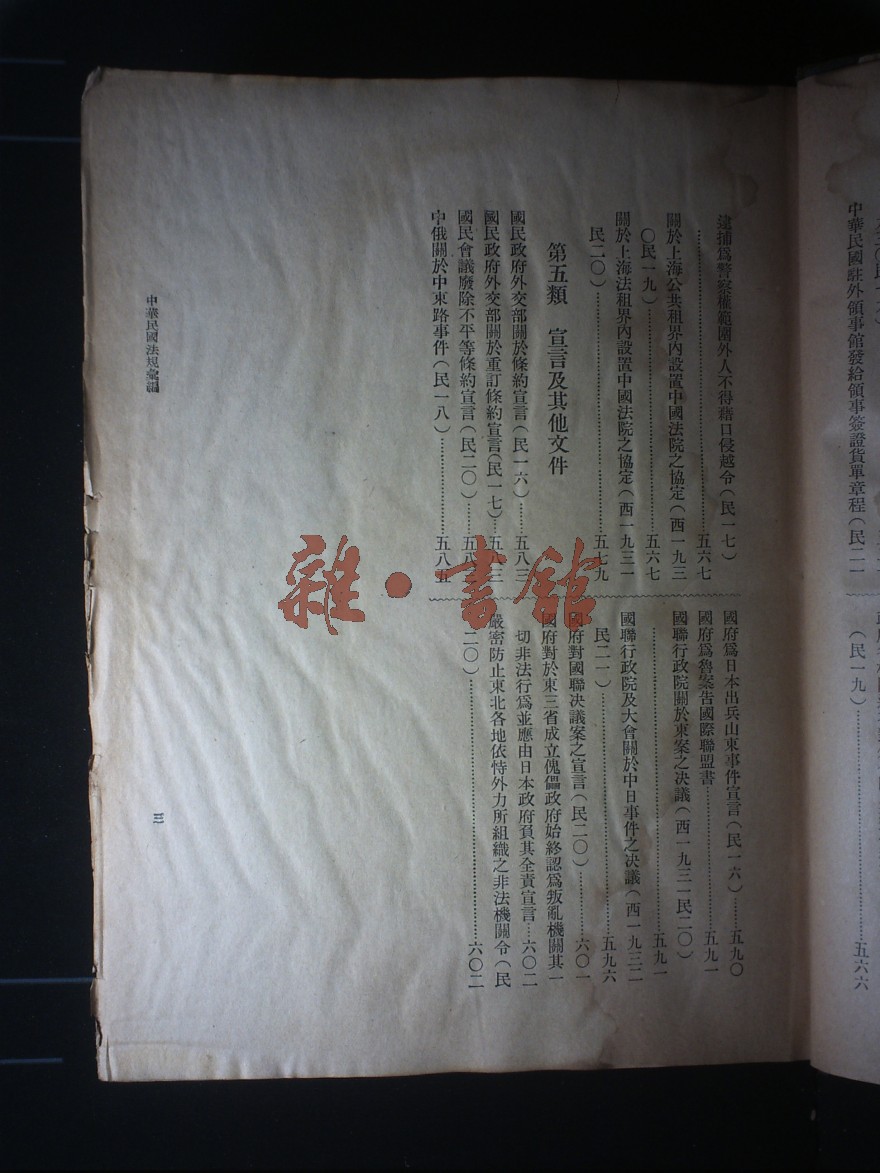 中華民國駐外領事館發給領事簽證貨單章程(民二一
(民一九)……五六六
逮捕爲警察權範圍外人不得藉口侵越令(民一七)
……五六七
關於上海公共租界內設置中國法院之協定(西一九三
〇民一九)……五六七
關於上海法租界內設置中國法院之協定(西一九三一
民二〇)……五七九
第五類 宣言及其他文件
國民政府外交部關於條約宣言(民一六)……五八三
國民政府外交部關於重訂條約宣言(民一七)…五八三
國民會議廢除不平等條約宣言(民二〇)……五八
中俄關於中東路事件(民一八)……五八五
國府爲日本出兵山東事件宣言(民一六)……五九〇
國府爲魯案告國際聯盟書……五九一
國聯行政院關於東案之決議(西一九三一民二〇)
……五九一
國聯行政院及大會關於中日事件之決議(西一九三二
民二一)……五九六
國府對國聯決議案之宣言(民二〇)……六〇一
國府對於東三省成立傀儡政府始終認爲叛亂機關其一
切非法行爲並應由日本政府負其全責宣言…六〇二
嚴密防止東北各地依恃外力所組織之非法機關令(民
二〇)……六〇二
中華民國法規彙編
三
雜·書館